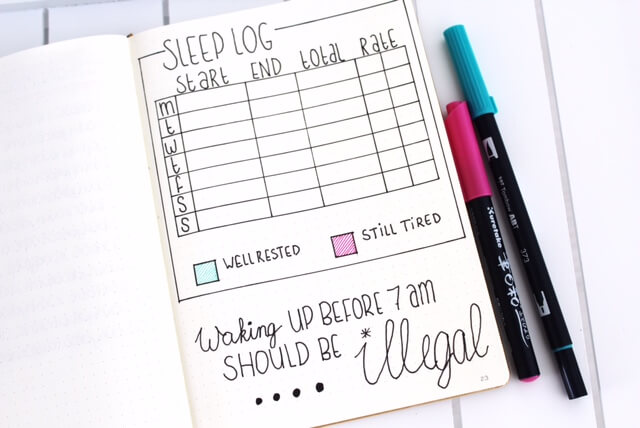 SLEEP LOG
START END total Rate
m
t
w
t
f
S
S
WELL RESTED
STILL TIRED
Waking UP BEFORE 7am
SHOULD BE illegal
Tombow ABT
373
Kuretake